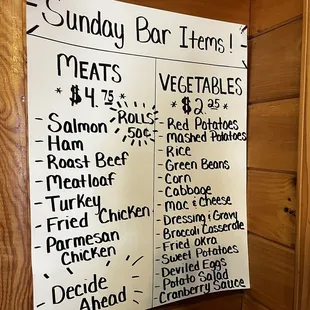 Sunday Bar Items!
MEATS
* $4.75 *
ROLLS
50¢
- Salmon
- Ham
- Roast Beef
- Meatloaf
- Turkey
- Fried Chicken
- Parmesan
Chicken
Decide
Ahead
VEGETABLES
* $2.25 *
- Red Potatoes
- Mashed Potatoes
- Rice
- Green Beans
- Corn
- Cabbage
- Mac & Cheese
- Dressing & Gravy
- Broccoli Casserole
- Fried Okra
- Sweet Potatoes
- Deviled Eggs
- Potato Salad
- Cranberry Sauce